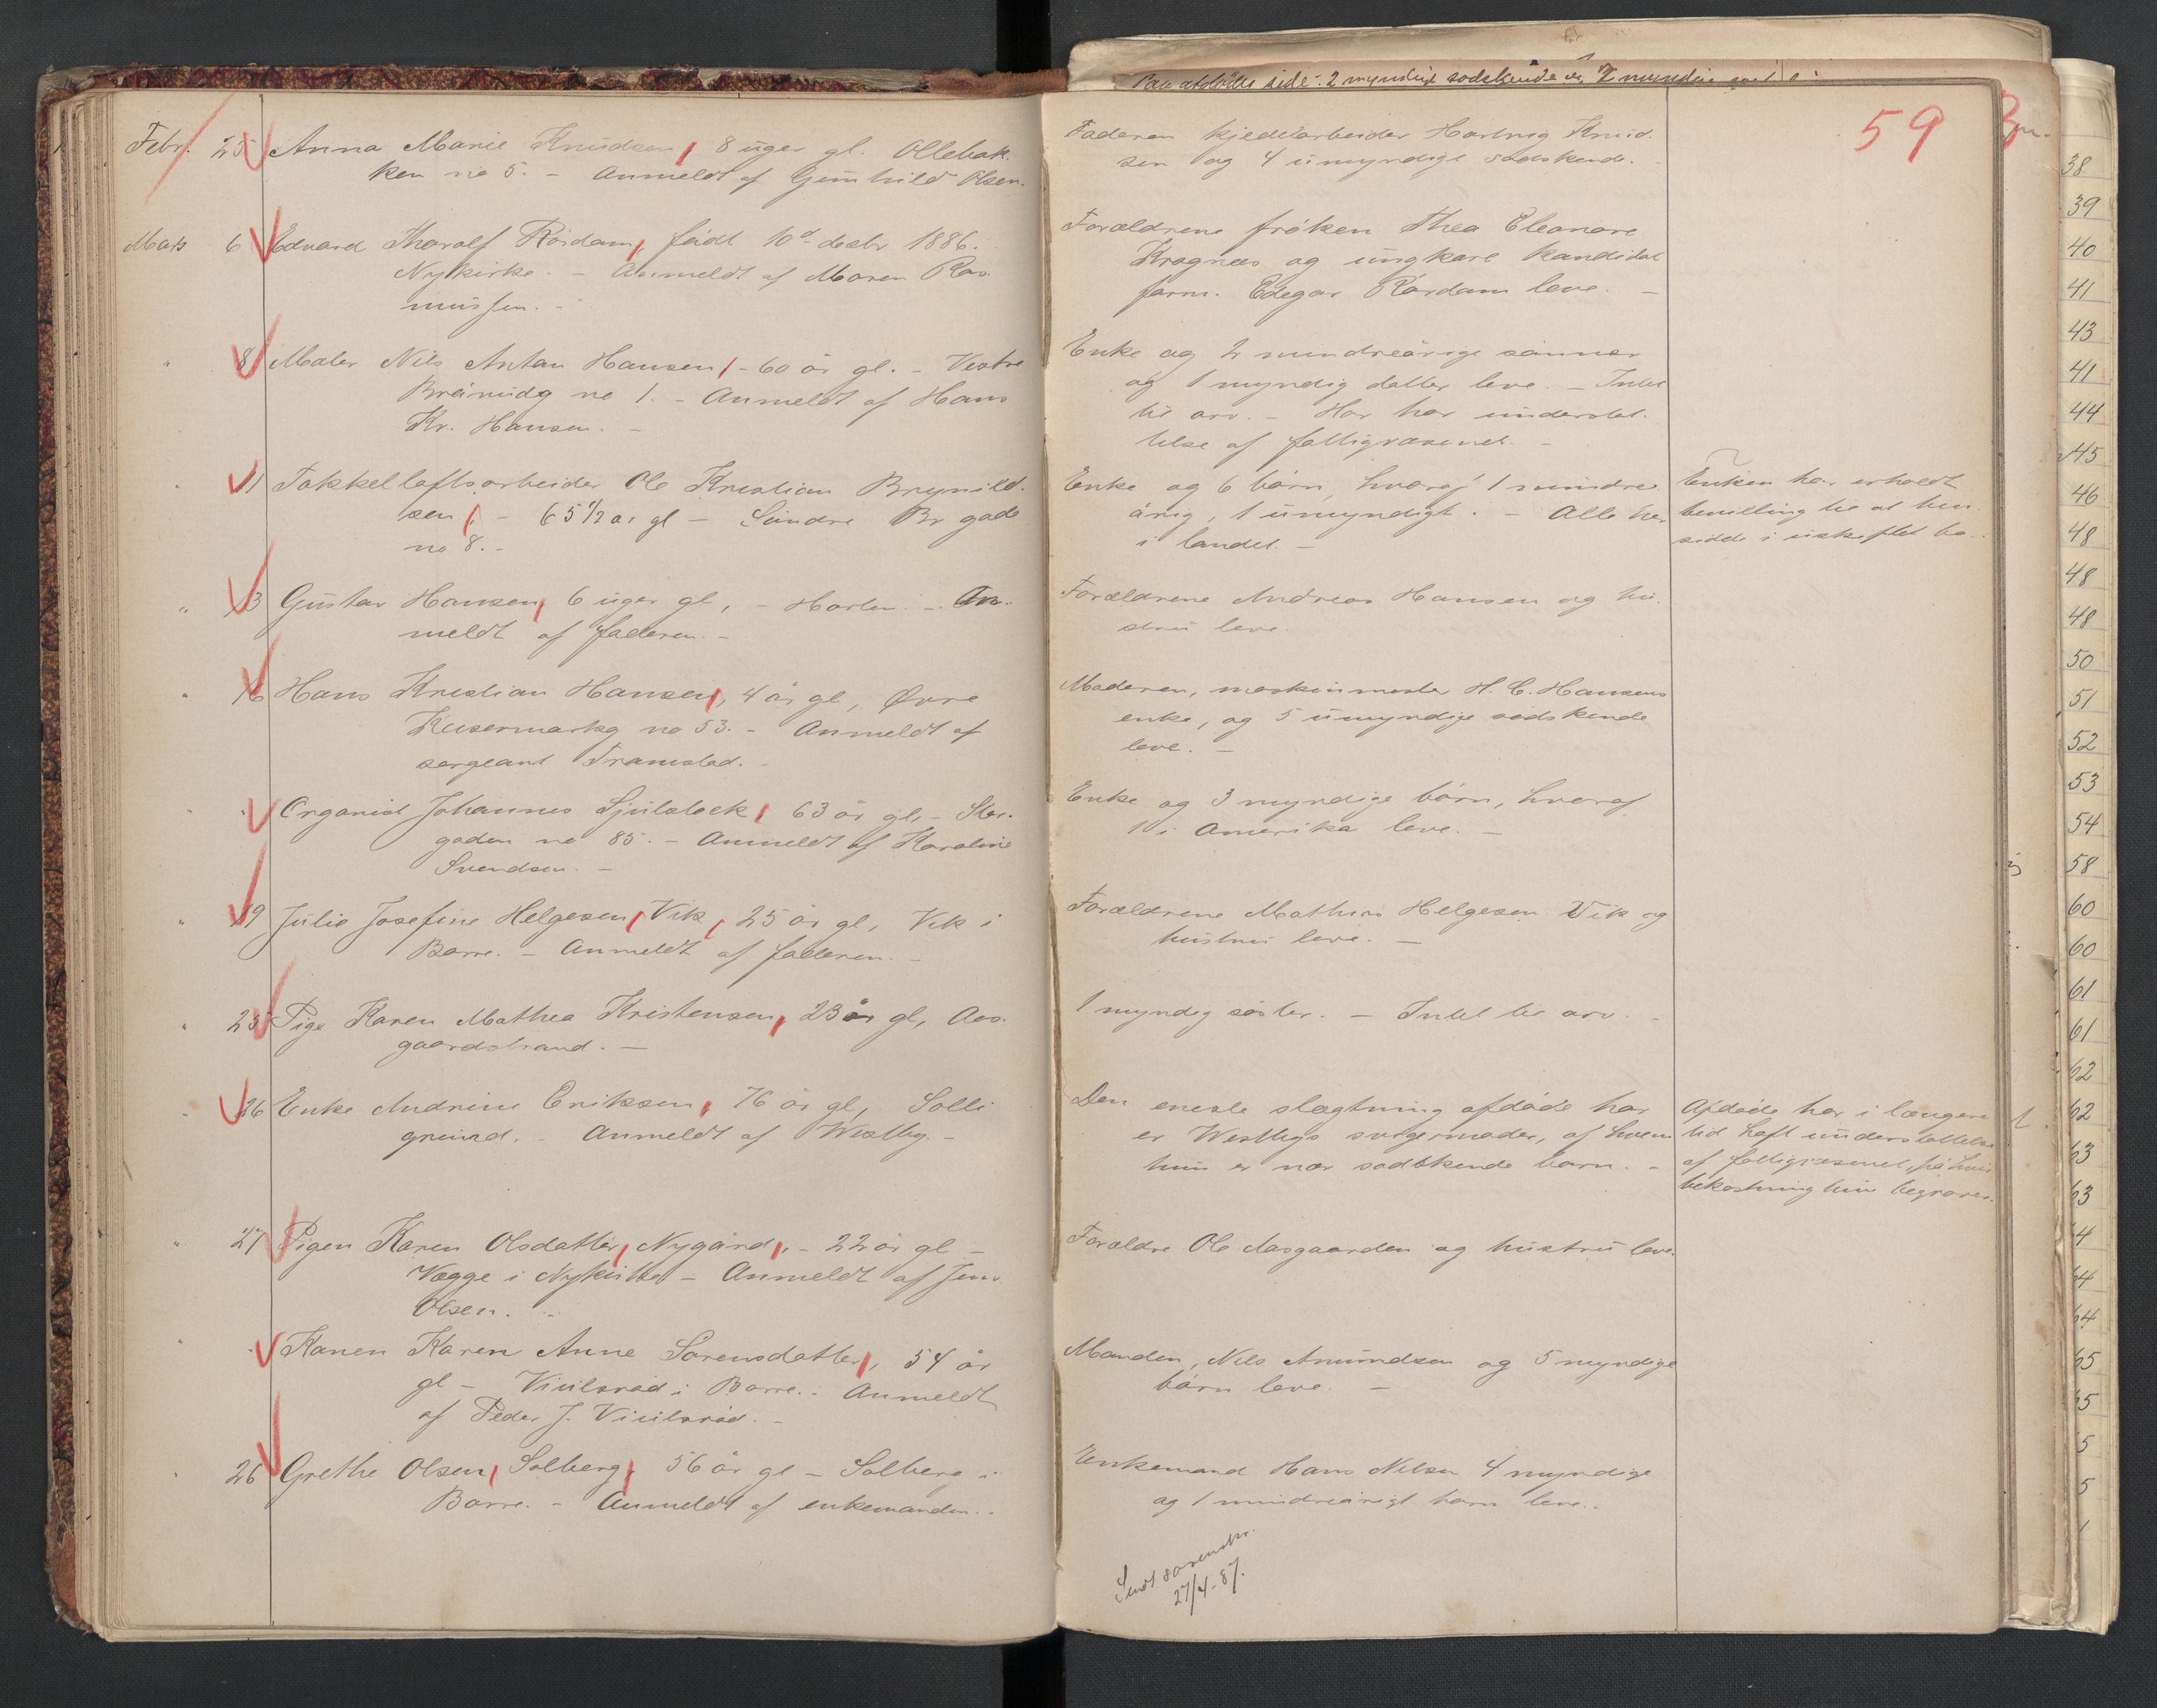 Febr. 25 Anna Marie Knudsen, 8 uger gl. Ollebak-
ken no 5. - Anmeldt af Gunhild Olsen.
Mars 6 Edvard Thoralf Rördam, födt 10de decbr 1886.
Nykirke. - Anmeldt af Maren Ras-
mussen. -
" 8 Maler Nils Anton Hansen, - 60 år gl. - Vestre
no 1. - Anmeldt af Hans
Kr. Hansen. -
" 11 Takkelloftsarbeider Ole Kristian Brynild-
sen, - 65 1/2 år gl - Söndre Br gade
no 8. -
" 13 Gustav Hansen, 6 uger gl, - Horten. - An-
meldt af faderen. -
" 16 Hans Kristian Hansen, 4 år gl, Övre
Keisermarkg no 53. - Anmeldt af
sergeant Framstad. -
" " Organist Johannes 63 år gl, - Stor-
gaden no 85. - Anmeldt af Karoline
Svendsen. -
" 19 Julie Josefine Helgesen, Vik, 25 år gl, Vik i
Borre. - Anmeldt af faderen. -
" 25 Pige Karen Mathea Kristensen, 23 år gl, Aas-
gaardstrand. -
" 26 Enke Andrine Eriksen, 76 år gl, Solli
grund. - Anmeldt af Westby. -
" 27 Pigen Karen Olsdatter, Nygård, - 22 år gl -
Vegge i Nykirke - Anmeldt af Jens
Olsen. -
" " Konen Karen Anne Sörensdatter, 54 år
gl - i Borre. - Anmeldt
af Peder J.
" 26 Grethe Olsen, Solberg, 56 år gl - Solberg i
Borre. - Anmeldt af enkemanden. -
59
Faderen kjedelarbeider Hartvig Knud-
sen og 4 umyndige södskende. -
Forældrene fröken Thea Eleonore
Kragnæs og ungkare kandidat
farm. Edegar Rördam leve. -
Enke og 2 mindreårige sönner
og 1 myndig datter leve. - Intet
til arv. - Har har understöt-
telse af fattigvæsenet. -
Enke og 6 börn, hvoraf 1 mindre-
årig, 1 umyndigt. - Alle her
i landet. -
Enken har erholdt
bevilling til at hen-
sidde i uskiftet bo.
Forældrene Andreas Hansen og hu-
stru leve.
Moderen, maskinmester H. C. Hansens
enke, og 5 umyndige södskende
leve. -
Enke og 3 myndige börn, hvoraf
1 i Amerika leve. -
Forældrene Mathias Helgesen Vik og
hustru leve. -
1 myndig söster. - Intet til arv. -
Den eneste slægtning afdöde har
er Westbys svigermoder, af hvem
hun er nær södskende barn. -
Afdöde har i længere
tid haft understöttelse
af fattigvæsenet, på hvis
bekostning hun begraves.
Forældre Ole Aasgaarden og hustru leve.
Manden, Nils Amundsen og 5 myndige
börn leve. -
Enkemand Hans Nilsen 4 myndige
og 1 mindreårigt barn leve. -
Sendt sorenskr.
27/4-87.
38
39
40
41
43
41
44
45
46
48
48
48
50
51
52
53
54
58
60
60
61
61
62
62
63
63